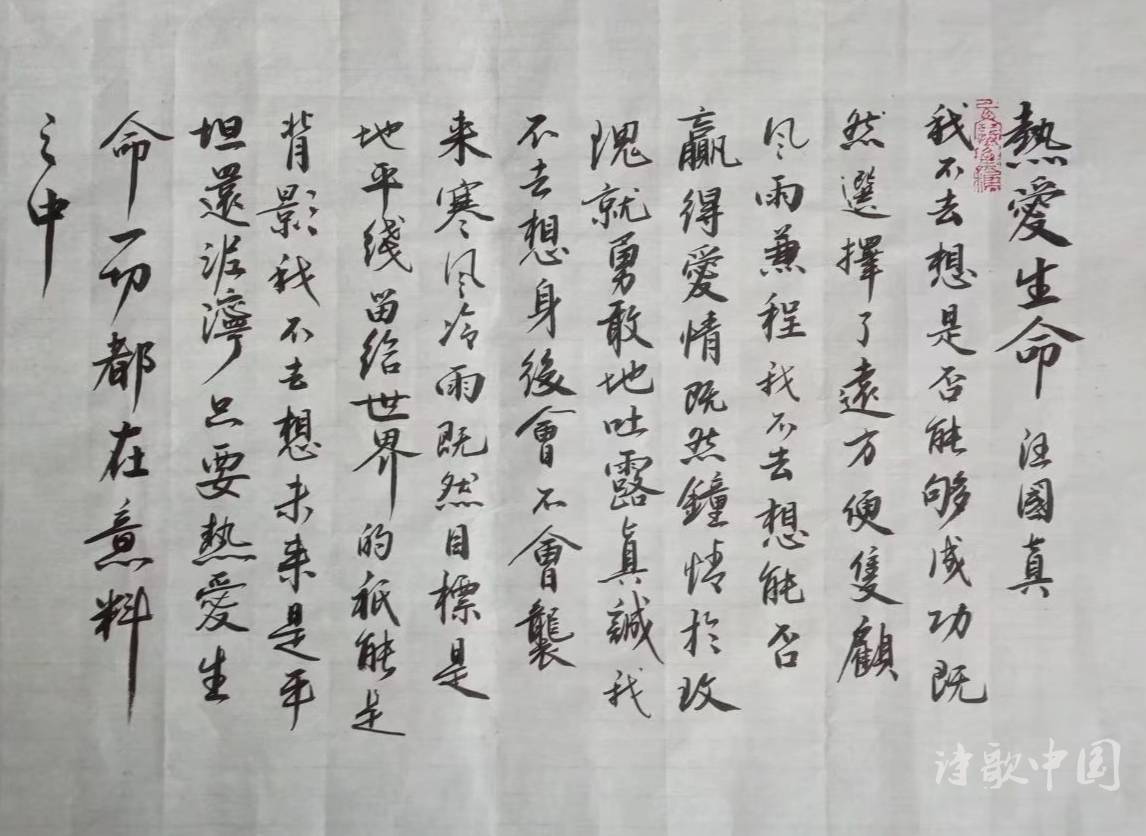 熱愛生命 汪國真
我不去想是否能够成功既
然選擇了遠方便隻顧
风雨兼程我不去想能否
贏得愛情既然鐘情於玫
瑰就勇敢地吐露真誠我
不去想身後會不會襲
来寒风冷雨既然目標是
地平线留给世界的祇能是
背影我不去想未来是平
坦還泥濘只要熱愛生
命一切都在意料
之中
诗歌中国